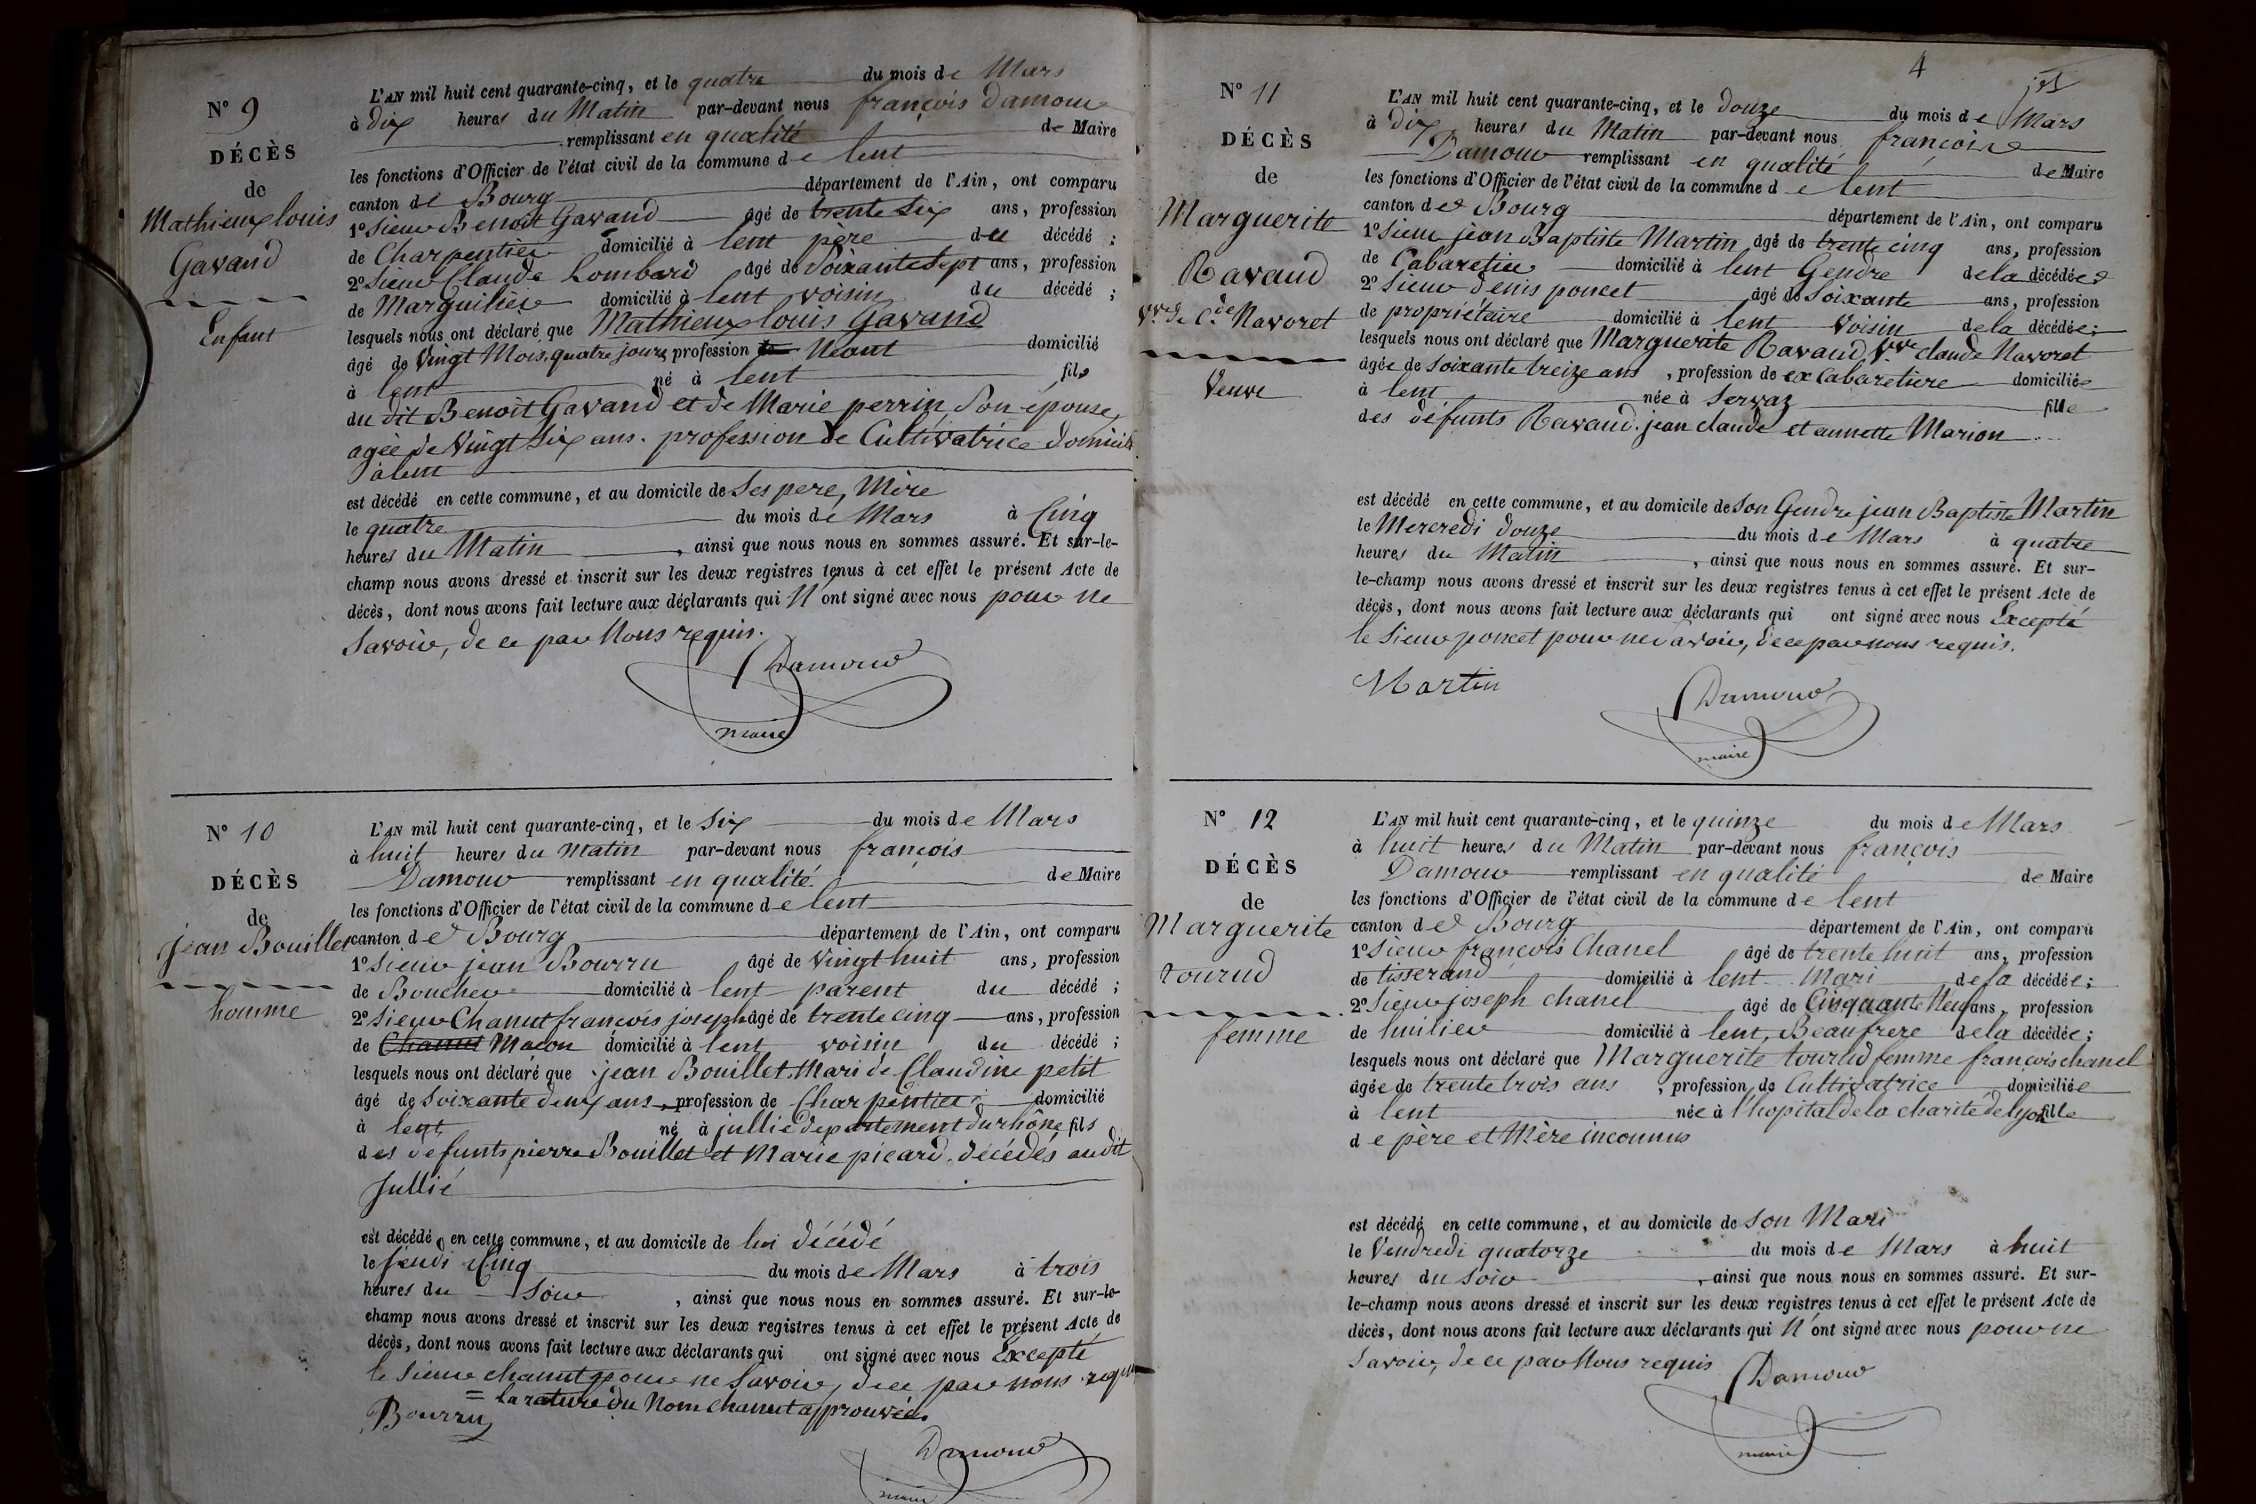 N° 9
DÉCÈS
de
Mathieux louis
Gavand
Enfant
L'AN mil huit cent quarante-cinq, et le quatre du mois de Mars
à dix heures du Matin par-devant nous françois Damour
remplissant en qualité de Maire
les fonctions d'Officier de l'état civil de la commune de lent
canton de Bourg département de l'Ain, ont comparu
1° Sieur Benoit Gavand âgé de trente six ans, profession
de Charpentier domicilié à lent père du décédé ;
2° Sieur Claude Lombard âgé de Soixante Sept ans, profession
de Marguilier domicilié à lent voisin du décédé ;
lesquels nous ont déclaré que Mathieux louis Gavand
âgé de Vingt Mois, quatre jours profession Néant domicilié
à lent né à lent fils
du dit Benoit Gavand et de Marie perrin, Son épouse,
agée de Vingt Six ans. profession de Cultivatrice domicile
à lent
est décédé en cette commune, et au domicile de Ses pere, Mère
le quatre du mois de Mars à Cinq
heures du Matin, ainsi que nous nous en sommes assuré. Et sur-le-
champ nous avons dressé et inscrit sur les deux registres tenus à cet effet le présent Acte de
décès, dont nous avons fait lecture aux déclarants qui N'ont signé avec nous pour ne
Savoir, de ce par Nous requis.
Damour
maire
N° 10
DÉCÈS
de
jean Bouillet
homme
L'AN mil huit cent quarante-cinq, et le Six du mois de Mars
à huit heures du matin par-devant nous françois
Damour remplissant en qualité de Maire
les fonctions d'Officier de l'état civil de la commune de lent
canton de Bourg département de l'Ain, ont comparu
1° Sieur jean Bourru âgé de Vingt huit ans, profession
de Boucher domicilié à lent parent du décédé ;
2° Sieur Chanut françois joseph âgé de trente cinq ans, profession
de Chanut Maçon domicilié à lent voisin du décédé ;
lesquels nous ont déclaré que jean Bouillet Mari de Claudine petit
âgé de Soixante deux ans, profession de Charpentier domicilié
à lent né à jullié departement du rhône fils
des défunts pierre Bouillet et Marie picard. décédés audit
Jullié
est décédé en cette commune, et au domicile de lui décédé
le jeudi Cinq du mois de Mars à trois
heures du Soir, ainsi que nous nous en sommes assuré. Et sur-le-
champ nous avons dressé et inscrit sur les deux registres tenus à cet effet le présent Acte de
décès, dont nous avons fait lecture aux déclarants qui ont signé avec nous Excepté
le Sieur chanut pour ne Savoir, de ce par nous requis
= la rature du Nom chanut approuvée.
Bourru
Damour
maire
4
N° 11
DÉCÈS
de
Marguerite
Ravaud
Vve de Cde Navoret
Veuve
L'AN mil huit cent quarante-cinq, et le douze du mois de Mars
à dix heures du Matin par-devant nous françois
Damour remplissant en qualité de Maire
les fonctions d'Officier de l'état civil de la commune de lent
canton de Bourg département de l'Ain, ont comparu
1° Sieur jean Baptiste Martin âgé de trente cinq ans, profession
de Cabaretier domicilié à lent Gendre de la décédée
2° Sieur denis poncet âgé de Soixante ans, profession
de propriétaire domicilié à lent Voisin de la décédée ;
lesquels nous ont déclaré que Marguerite Ravaud, Vve claude Navoret
âgée de Soixante treize ans, profession de ex Cabaretiere domiciliée
à lent née à Servaz fille
des défunts Ravaud jean claude et annette Marion
est décédé en cette commune, et au domicile de Son Gendre jean Baptiste Martin
le Mercredi douze du mois de Mars à quatre
heures du Matin, ainsi que nous nous en sommes assuré. Et sur-
le-champ nous avons dressé et inscrit sur les deux registres tenus à cet effet le présent Acte de
décès, dont nous avons fait lecture aux déclarants qui ont signé avec nous Excepté
le Sieur poncet pour ne Savoir, de ce par nous requis.
Martin
Damour
maire
N° 12
DÉCÈS
de
Marguerite
tourud
femme
L'AN mil huit cent quarante-cinq, et le quinze du mois de Mars
à huit heures du Matin par-devant nous françois
Damour remplissant en qualité de Maire
les fonctions d'Officier de l'état civil de la commune de lent
canton de Bourg département de l'Ain, ont comparu
1° Sieur françois Chanel âgé de trente huit ans, profession
de tisserand domicilié à lent Mari de la décédée ;
2° Sieur joseph chanel âgé de Cinquante Neuf ans, profession
de huilier domicilié à lent, Beaufrere de la décédée ;
lesquels nous ont déclaré que Marguerite tourud femme françois chanel
âgée de trente trois ans, profession de Cultivatrice domiciliée
à lent née à l'hopital de la charité de lyon fille
de père et Mère inconnus
est décédé en cette commune, et au domicile de Son Mari
le Vendredi quatorze du mois de Mars à huit
heures du Soir, ainsi que nous nous en sommes assuré. Et sur-
le-champ nous avons dressé et inscrit sur les deux registres tenus à cet effet le présent Acte de
décès, dont nous avons fait lecture aux déclarants qui N'ont signé avec nous pour ne
Savoir, de ce par Nous requis
Damour
maire